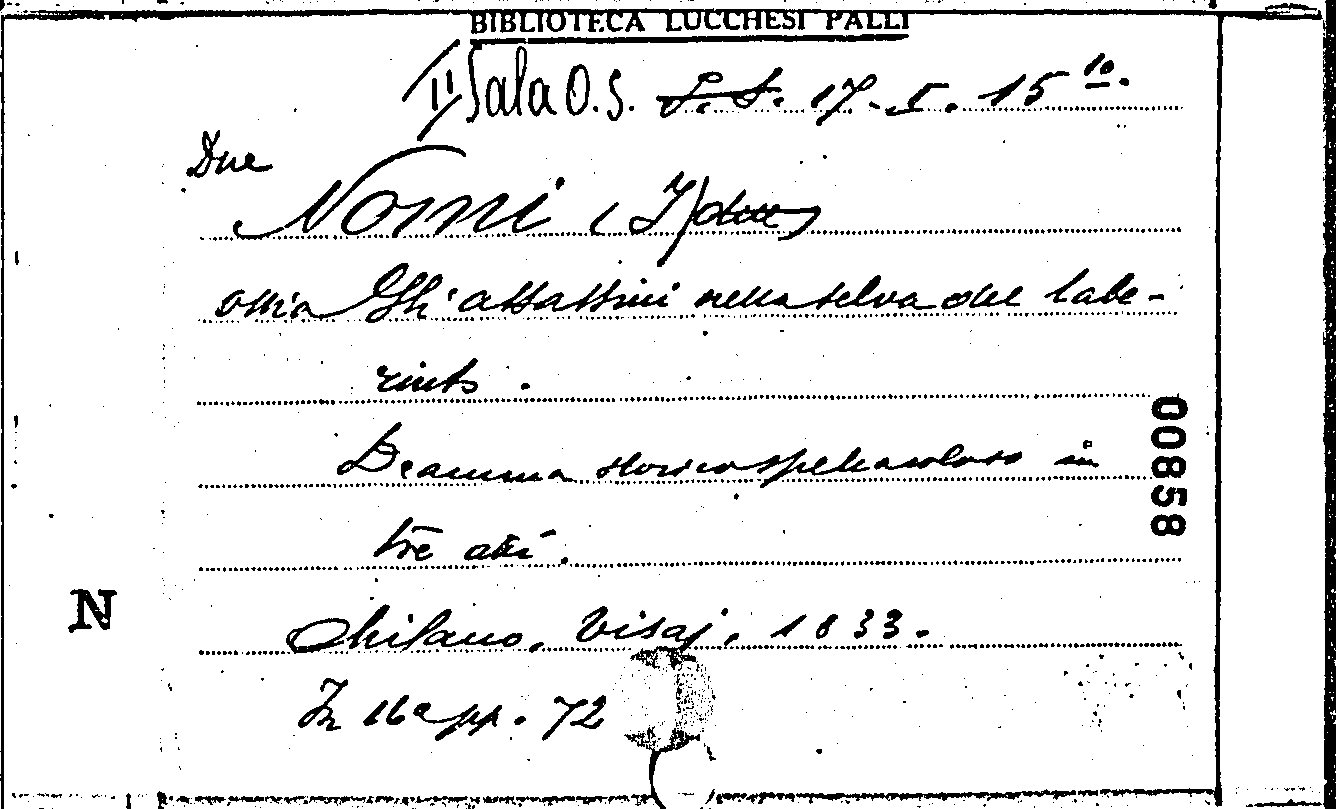 BIBLIOTECA LUCCHESI PALLI
II Sala O. S. S. S. 17. I. 15 10.
Due
Nomi (I due)
ossia Gli assassini nella selva del labe-
rinto.
Dramma storico spettacoloso in
tre atti.
Milano, Visaj, 1833.
In 16° pp. 72
N
00858